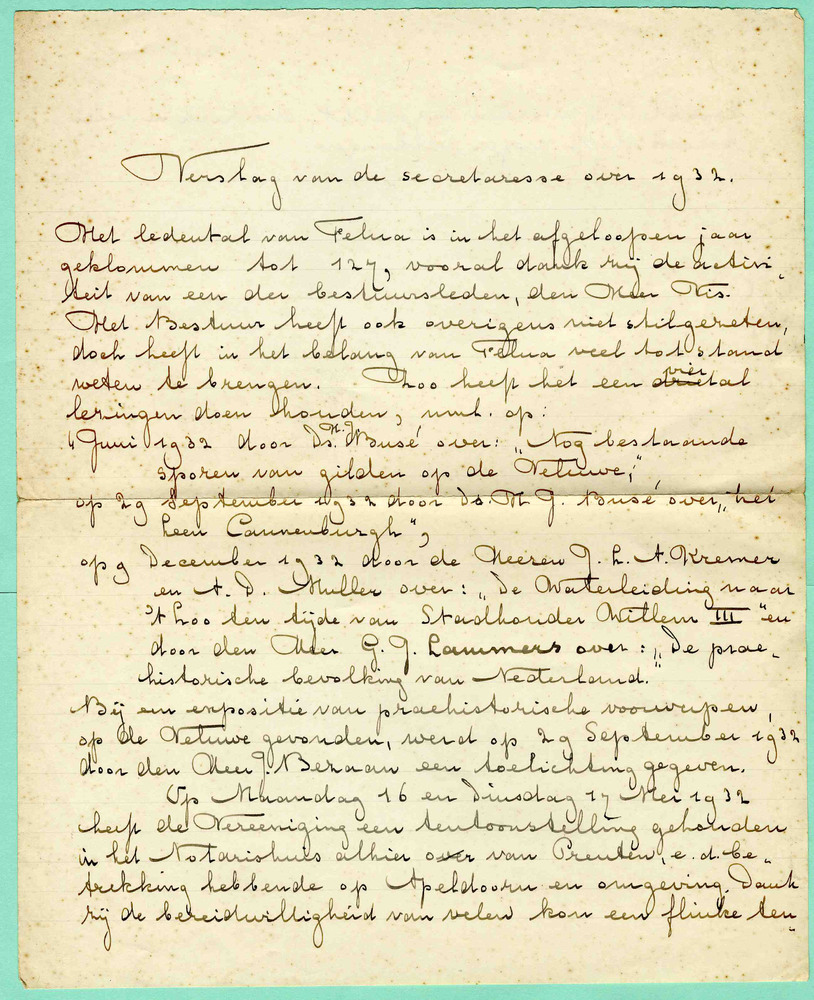 Verslag van de secretaresse over 1932.
Het ledental van Felua is in het afgeloopen jaar
geklommen tot 127, vooral dank zij de activi-
teit van een der bestuursleden, den Heer Vis.
Het Bestuur heeft ook overigens niet stilgezeten,
doch heeft in het belang van Felua veel tot stand
weten te brengen. Zoo heeft het een viertal
lezingen doen houden, nml. op:
4 Juni 1932 door Ds. H. J. Busé over: „Nog bestaande
sporen van gilden op de Veluwe;”
op 29 September 1932 door Ds. H. J. Busé over „het
Leen Cannenburgh”,
op 9 December 1932 door de Heeren J. L. A. Kremer
en A. D. Muller over: „De Waterleiding naar
't Loo ten tijde van Stadhouder Willem III” en
door den Heer G. J. Lammers over: „De prae-
historische bevolking van Nederland.”
Bij een expositie van praehistorische voorwerpen,
op de Veluwe gevonden, werd op 29 September 1932
door den Heer J. Bezaan een toelichting gegeven.
Op Maandag 16 en Dinsdag 17 Mei 1932
heeft de Vereeniging een tentoonstelling gehouden
in het Notarishuis alhier van Prenten, e.d. be-
trekking hebbende op Apeldoorn en omgeving. Dank
zij de bereidwilligheid van velen kon een flinke ten-